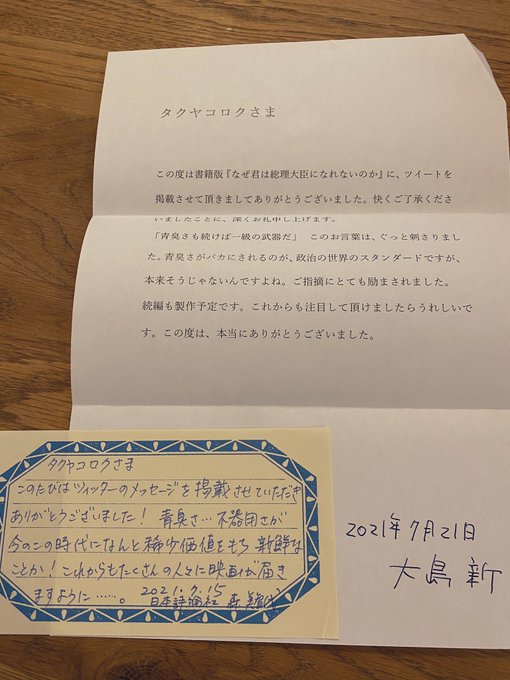 タクヤコロクさま
この度は書籍版『なぜ君は総理大臣になれないのか』に、ツイートを
掲載させて頂きましてありがとうございました。快くご了承くださ
いましたことに、深くお礼申し上げます。
「青臭さも続けば一級の武器だ」 このお言葉は、ぐっと刺さりまし
た。青臭さがバカにされるのが、政治の世界のスタンダードですが、
本来そうじゃないんですよね。ご指摘にとても励まされました。
続編も製作予定です。これからも注目して頂けましたらうれしいで
す。この度は、本当にありがとうございました。
2021年7月21日
大島 新
タクヤコロクさま
このたびはツイッターのメッセージを掲載させていただき
ありがとうございました！ 青臭さ…不器用さが
今のこの時代になんと稀少価値をもち 新鮮な
ことか！これからもたくさんの人々に映画が届き
ますように……。
2021.7.15
日本評論社 森